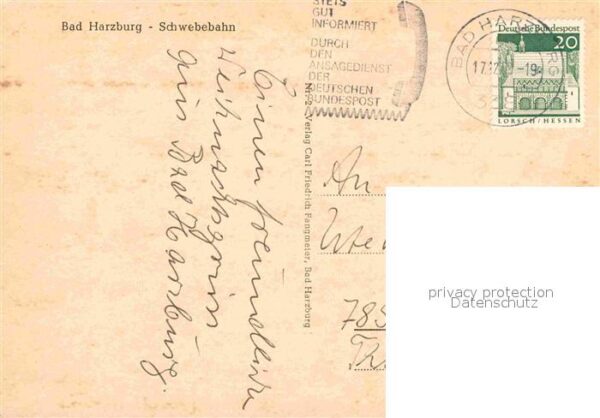 Bad Harzburg - Schwebebahn
STETS
GUT
INFORMIERT
DURCH
DEN
ANSAGEDIENST
DER
DEUTSCHEN
BUNDESPOST
BAD HARZBURG
17.12
-19
Deutsche Bundespost
20
LORSCH/HESSEN
Einen freundlichen
Weihnachtsgruss
aus Bad Harzburg.
Verlag Carl Friedrich Fangmeier, Bad Harzburg
An
785
privacy protection
Datenschutz